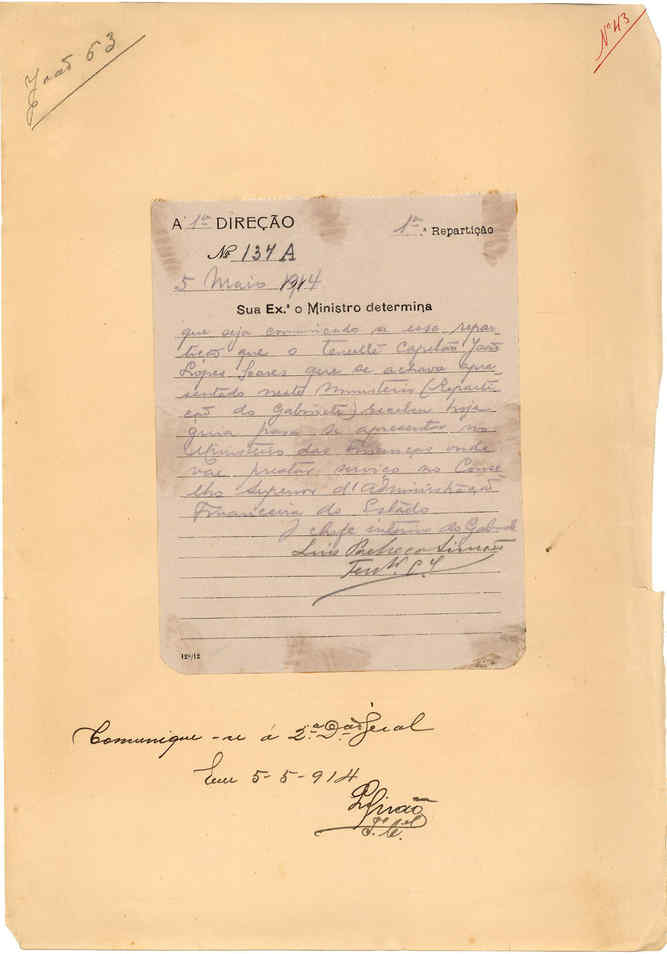 João 63
Nº 43
A 1ª DIREÇÃO
1ª Repartição
Nº 137 A
5 Maio 1914
Sua Ex.ª o Ministro determina
que seja comunicado a essa repar-
tição que o Capitão João
Lopes Soares que se achava apre
sentado neste Ministerio (Reparti
ção do Gabinete) recebeu hoje
guia para se apresentar no
Ministerio das Finanças onde
vae prestar serviço no Conse
lho Superior d'Administração
Financeira do Estado.
O chefe interino do Gabinete
Luis Pacheco Simões
Ten
12º/12
Comunique-se á 2ª D. Geral
Em 5-5-914